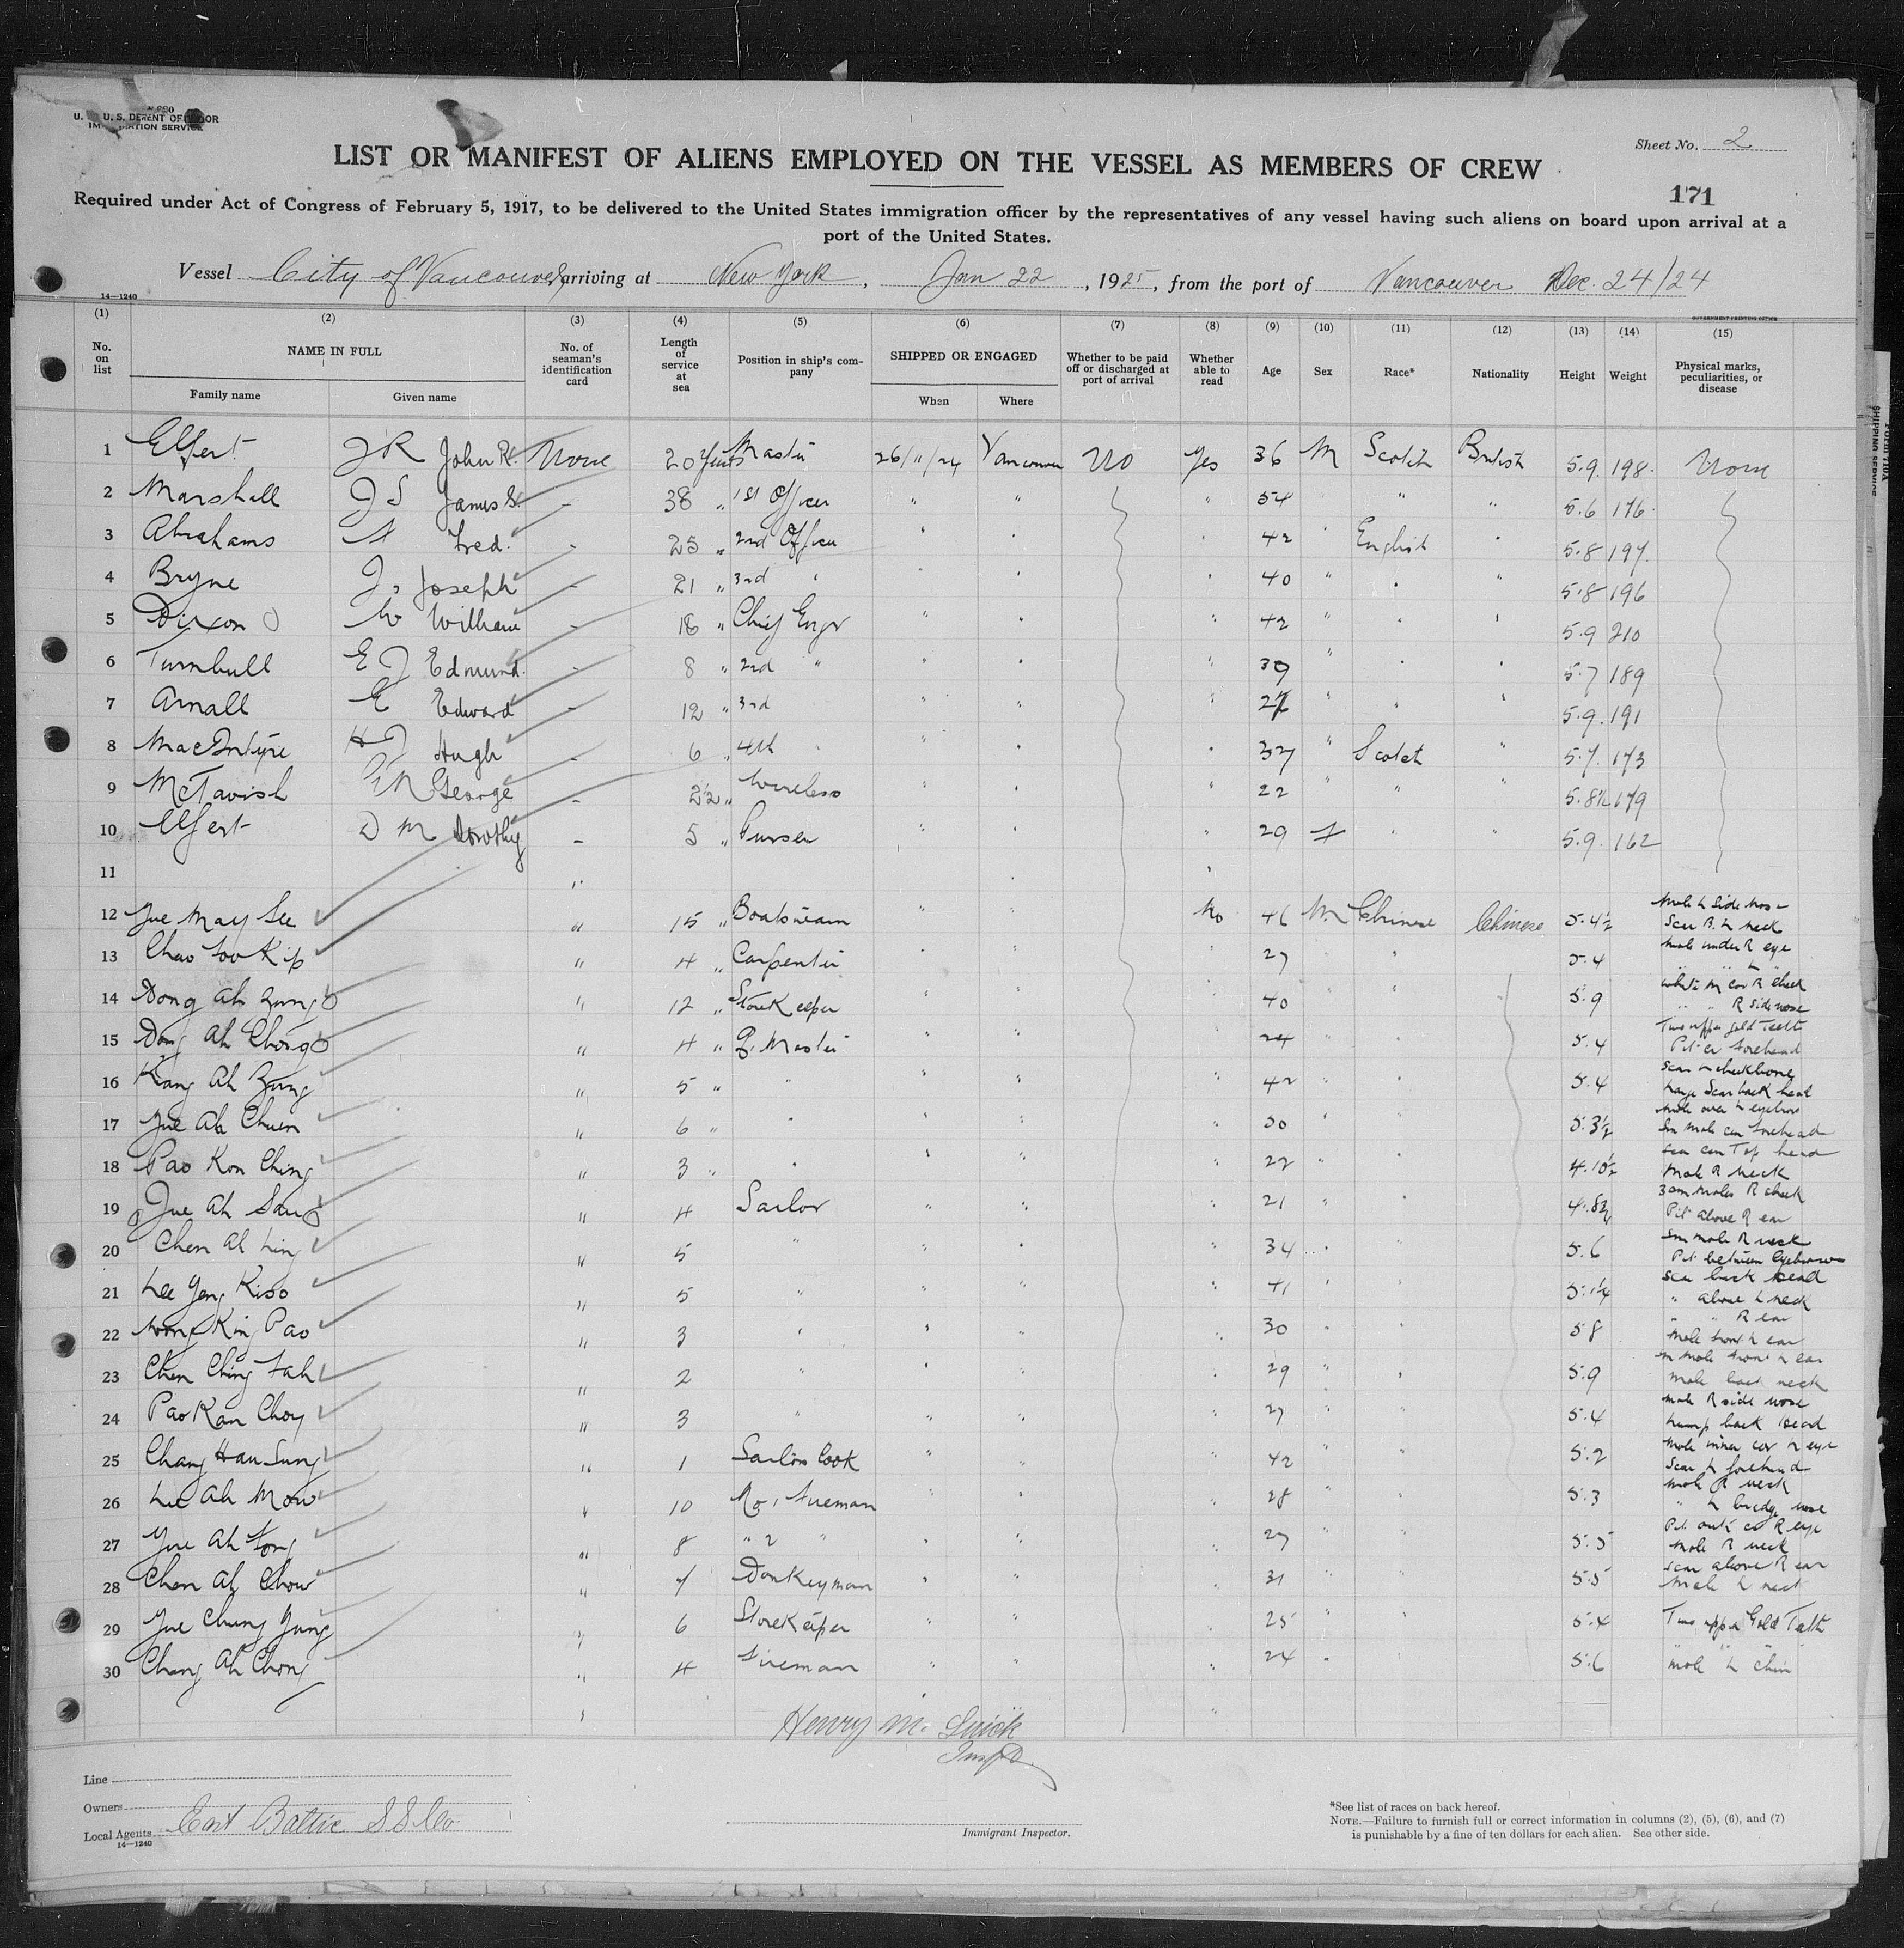 U. S. DEPARTMENT OF LABOR
IMMIGRATION SERVICE
Sheet No. 2
LIST OR MANIFEST OF ALIENS EMPLOYED ON THE VESSEL AS MEMBERS OF CREW
171
Required under Act of Congress of February 5, 1917, to be delivered to the United States immigration officer by the representatives of any vessel having such aliens on board upon arrival at a
port of the United States.
Vessel City of Vancouver, arriving at New York, Jan 22, 1925, from the port of Vancouver Dec. 24/24
14—1240
GOVERNMENT PRINTING OFFICE
(1) (2) (3) (4) (5) (6) (7) (8) (9) (10) (11) (12) (13) (14) (15)
No. on list
NAME IN FULL
Family name Given name
No. of seaman's identification card
Length of service at sea
Position in ship's company
SHIPPED OR ENGAGED
When Where
Whether to be paid off or discharged at port of arrival
Whether able to read
Age Sex Race* Nationality Height Weight
Physical marks, peculiarities, or disease
1 Elfert J R John R. None 20 Years Master 26/11/24 Vancouver No Yes 36 M Scotch British 5.9. 198. None
2 Marshall J S James S. - 38 " 1st Officer " " " 54 " " " 5.6 176.
3 Abrahams Fred. - 25 " 2nd Officer " " " 42 " English " 5.8 197.
4 Bryne J. Joseph - 21 " 3rd " " " " 40 " " " 5.8 196
5 Dixon W William - 18 " Chief Engr " " " 42 " " " 5.9 210
6 Turnbull E J Edmund. - 8 " 2nd " " " " 39 " " " 5.7 189
7 Arnall E Edward - 12 " 3rd " " " " " " 5.9. 191
8 MacIntyre H J Hugh - 6 " 4th " " " " 37 " Scotch " 5.7. 173
9 McTavish George - 2½ " Wireless " " " 22 " " " 5.8½ 179
10 Elfert D M Dorothy - 5 " Purser " " " 29 f " " 5.9. 162
11
12 Jue May See " 15 " Boatswain " " No 46 M. Chinese Chinese 5.4½ Mole L Side Nose
Scar B. L neck
13 Chao Foo Kip " 4 " Carpenter " " 27 " " 5.4 Mole under R eye
14 Dong Ah Zung " 12 " Storekeeper " " " 40 " " " 5.9 R side nose
15 Dong Ah Chong " 4 " Q. Master " " 24 " " 5.4 Two upper gold Teeth
forehead
16 Kang Ah Zung " 5 " " " " " 42 " " 5.4 Scar cheekbone
Large Scar back head
17 Jue Ah Chuen " 6 " " " " " 30 " 5.3½ Mole over L eyebrow
Sm mole cen forehead
18 Pao Kon Ching " 3 " " " " " 22 " " 4.10½ Scar cen Top head
Mole R neck
19 Jue Ah Sau " 4 Sailor " " " 21 " " 3 sm moles R cheek
Pit above R ear
20 Chen Ah Ling " 5 " " " " 34 " " 5.6 Sm mole R neck
Pit between Eyebrows
21 Lee Yong Kiso " 5 " " " " 41 " " 5.1¼ Scar back head
" above L neck
22 Wong King Pao " 3 " " " " 30 " " 5.8 " " R ear
Mole front L ear
23 Chen Ching Fah " 2 " " " " 29 " " 5.9 mole front L ear
mole back neck
24 Pao Kan Choy " 3 " " " " 27 " " 5.4 Mole R side nose
Lump back head
25 Chang Hau Sung " 1 Sailors Cook " " " 42 " " 5.2 Mole inner cor L eye
Scar L forehead
26 Lee Ah Mow " 10 No 1 Fireman " " " 28 " " 5.3 Mole R neck
" L bridge nose
27 Jue Ah Fong " 8 " 2 " " " " 27 " " 5.5 Pit out cor R eye
Mole R neck
28 Chen Ah Chow " 7 Donkeyman " " " 31 " " 5.5 Scar above R ear
Mole L neck
29 Jue Chung Yung " 6 Storekeeper " " " 25 " " 5.4 Two upper Gold Teeth
30 Chang Ah Chong " 4 Fireman " " " 24 " 5.6 Mole L chin
Henry M.
Insp
Line
Owners
Local Agents East Baltic S S Co.
14—1240
Immigrant Inspector.
*See list of races on back hereof.
NOTE.—Failure to furnish full or correct information in columns (2), (5), (6), and (7)
is punishable by a fine of ten dollars for each alien. See other side.